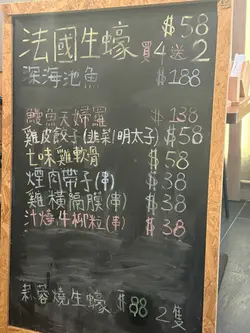 法國生蠔 $58
買4送2
深海池魚 $188
鱈魚天婦羅 $138
雞皮餃子(韭菜/明太子) $58
七味雞軟骨 $58
煙肉帶子(串) $38
雞橫隔膜(串) $38
汁燒牛柳粒(串) $38
蒜蓉燒生蠔 $88 2隻